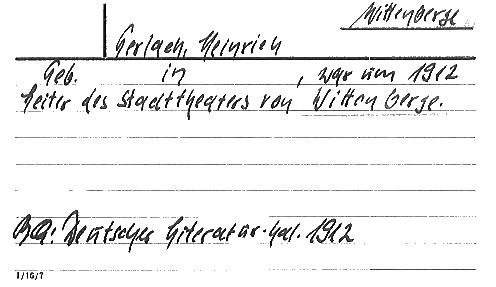 Wittenberge
Gerlach, Heinrich
Geb. in , war um 1912
Leiter des Stadttheaters von Wittenberge.
BQ: Deutscher Literatur-Kal. 1912
1/16/7